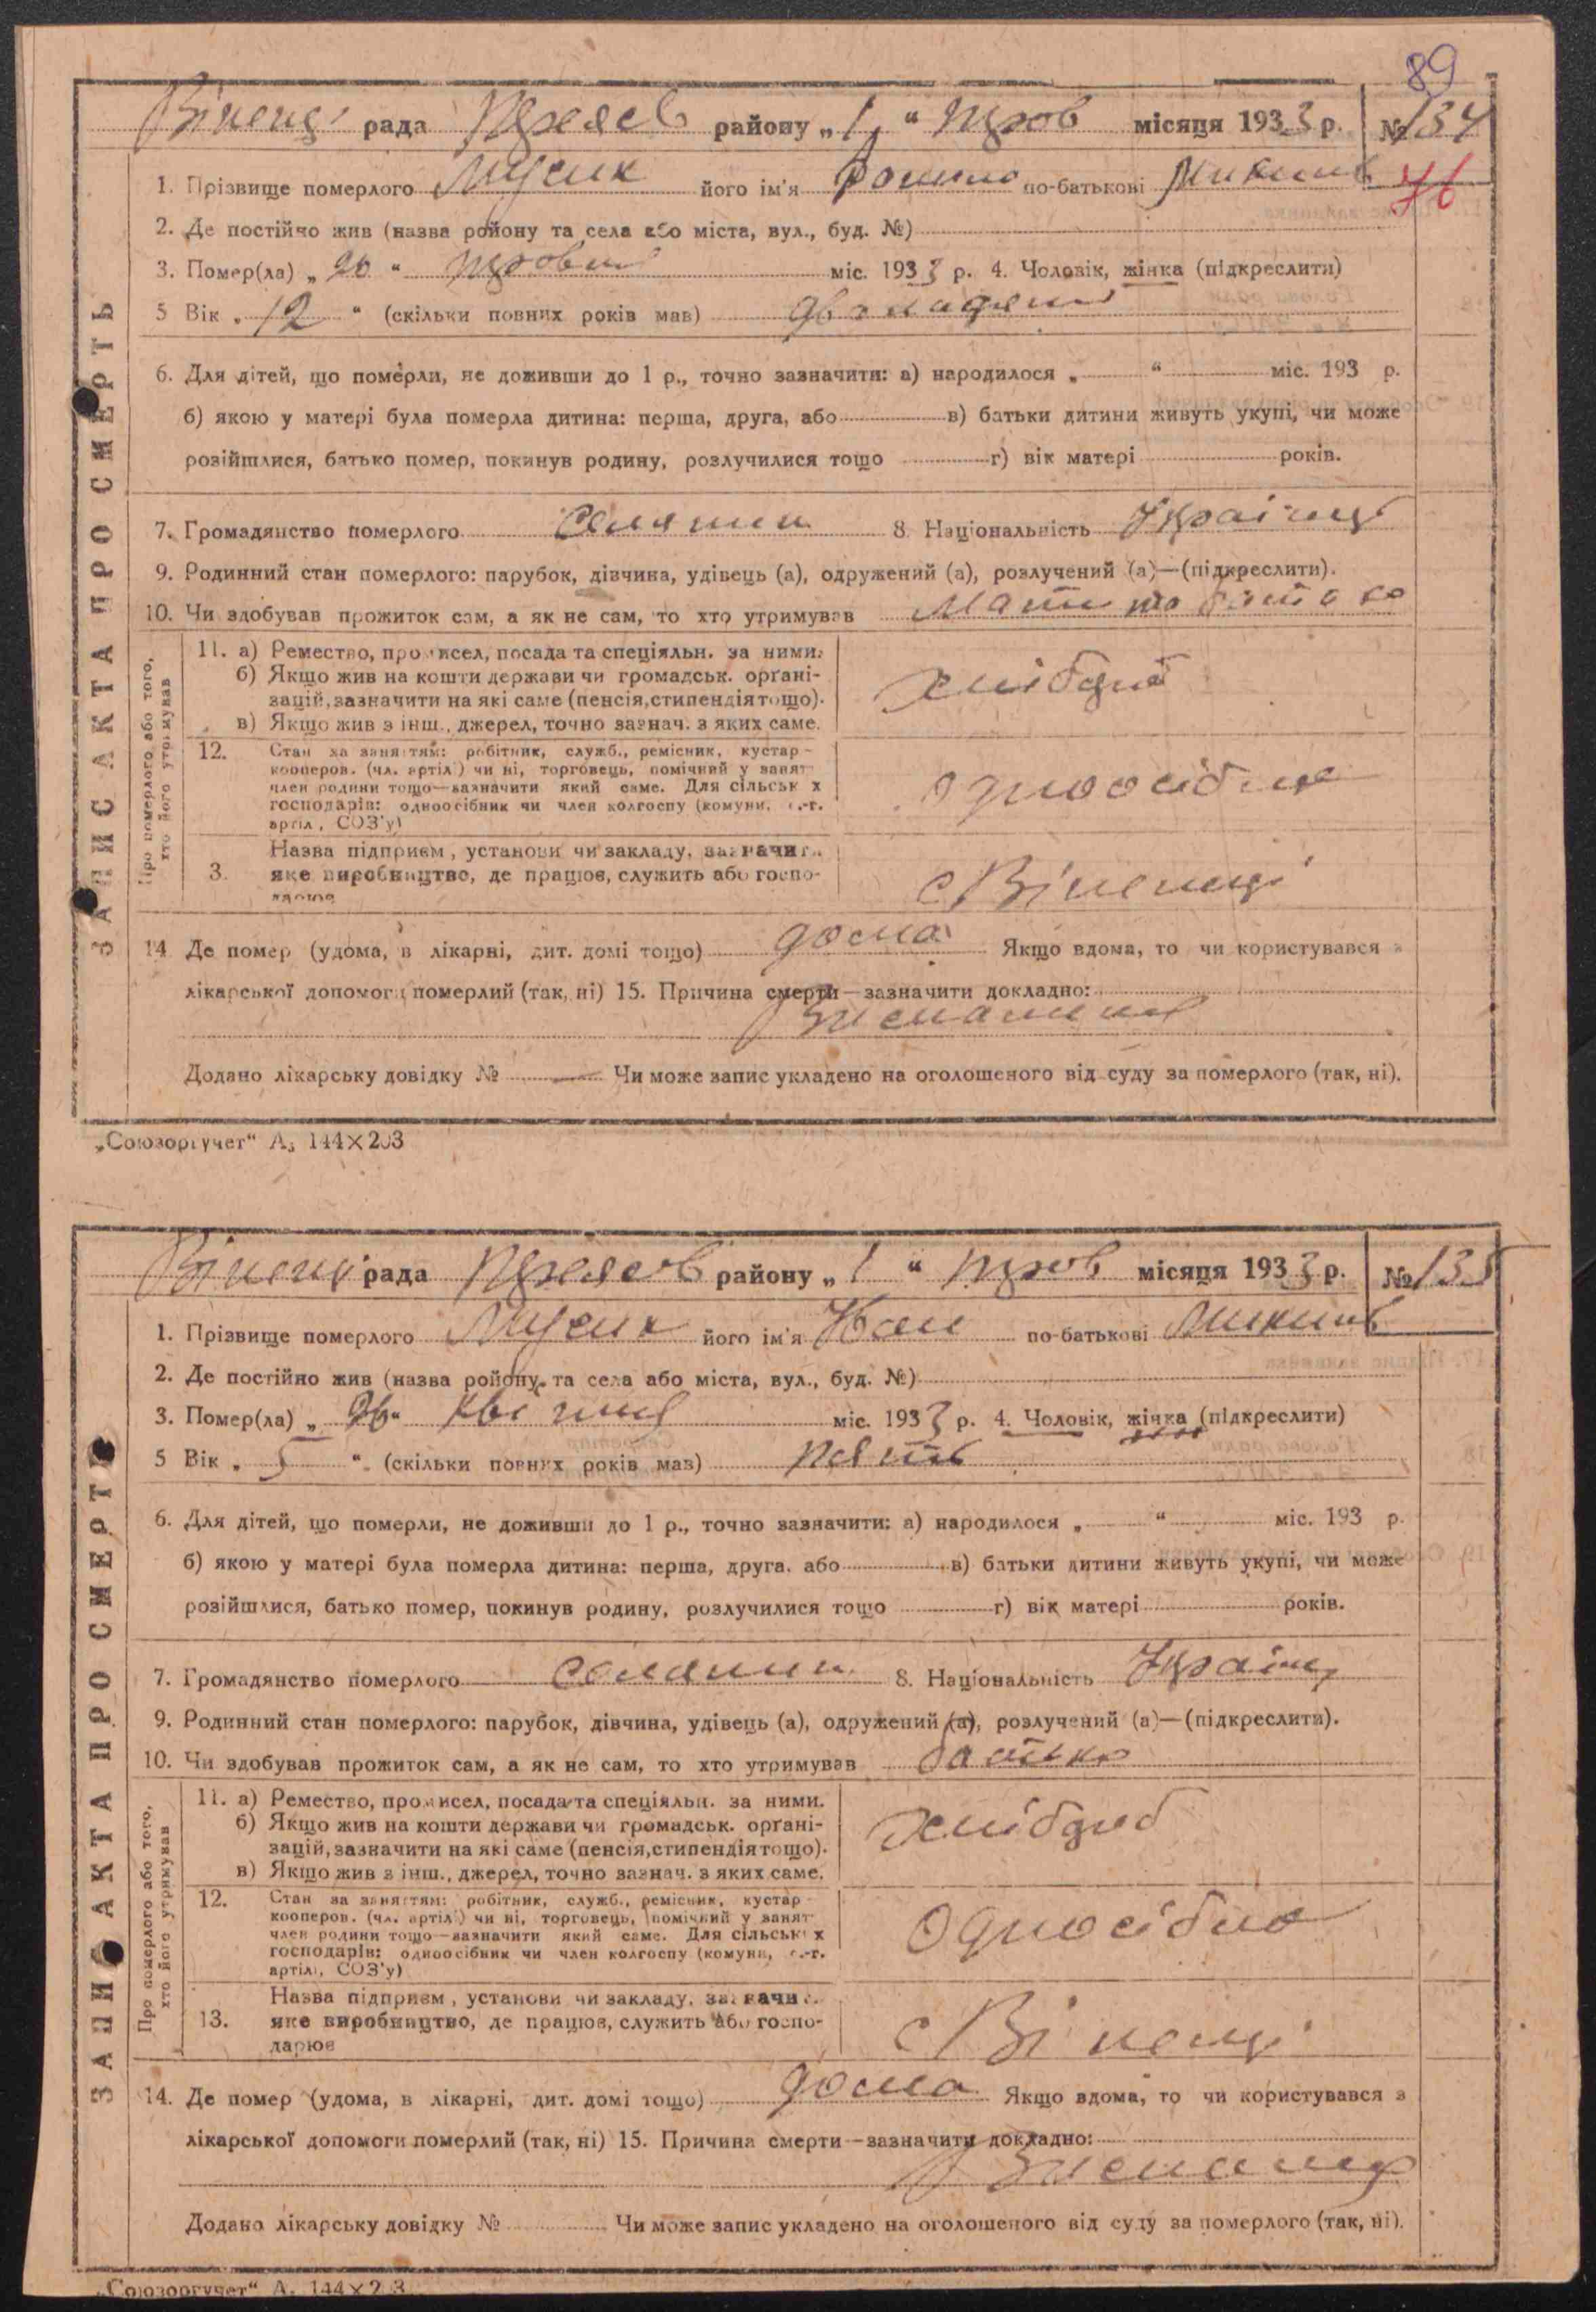 89
Віненці рада Переясл району „ 1 “ червн місяця 1933 р. № 134
76
1. Прізвище померлого Мусик його ім'я по-батькові Микит
2. Де постійно жив (назва району та села або міста, вул., буд. №)
3. Помер(ла) „ 26 “ міс. 1933 р. 4. Чоловік, жінка (підкреслити)
5 Вік „ 12 “ (скільки повних років мав) дванадцять
6. Для дітей, що померли, не доживши до 1 р., точно зазначити: а) народилося „ “ міс. 193 р.
б) якою у матері була померла дитина: перша, друга, або в) батьки дитини живуть укупі, чи може
розійшлися, батько помер, покинув родину, розлучилися тощо г) вік матері років.
7. Громадянство померлого селянин 8. Національність Україн
9. Родинний стан померлого: парубок, дівчина, удівець (а), одружений (а), розлучений (а)—(підкреслити).
10. Чи здобував прожиток сам, а як не сам, то хто утримував Мати та батько
ЗАПИС АКТА ПРО СМЕРТЬ
Про померлого або того, хто його утримував
11. а) Ремество, промисел, посада та спеціяльн. за ними. хлібороб
б) Якщо жив на кошти держави чи громадськ. орґані-
зацій, зазначити на які саме (пенсія, стипендія тощо).
в) Якщо жив з інш., джерел, точно зазнач. з яких саме.
12. Стан за заняттям: робітник, служб., ремісник, кустар -
кооперов. (чл. артілі) чи ні, торговець, помічний у занят
член родини тощо—зазначити який саме. Для сільськ х
господарів: одноосібник чи член колгоспу (комуни, с.-г.
артіл , СОЗ'у)
одноосібне
Назва підприєм , установи чи закладу, зазначит.
3. яке виробництво, де працюв, служить або госпо-
дарюв
с Віненці
14 Де помер (удома, в лікарні, дит. домі тощо) дома Якщо вдома, то чи користувався з
лікарської допомоги померлий (так, ні) 15. Причина смерти—зазначити докладно:
Додано лікарську довідку № — Чи може запис укладено на оголошеного від суду за померлого (так, ні).
„Союзоргучет“ А5 144×203
Віненці рада Переясл району „ 1 “ червн місяця 1933 р. № 135
1. Прізвище померлого Мусик його ім'я Іван по-батькові Микит
2. Де постійно жив (назва району та села або міста, вул., буд. №)
3. Помер(ла) „ 26 “ квітня міс. 1933 р. 4. Чоловік, жінка (підкреслити)
5 Вік „ 5 “ (скільки повних років мав) пять
6. Для дітей, що померли, не доживши до 1 р., точно зазначити: а) народилося „ “ міс. 193 р.
б) якою у матері була померла дитина: перша, друга. або в) батьки дитини живуть укупі, чи може
розійшлися, батько помер, покинув родину, розлучилися тощо г) вік матері років.
7. Громадянство померлого селянин 8. Національність Україн
9. Родинний стан померлого: парубок, дівчина, удівець (а), одружений (а), розлучений (а)—(підкреслити).
10. Чи здобував прожиток сам, а як не сам, то хто утримував батько
ЗАПИС АКТА ПРО СМЕРТЬ
Про померлого або того, хто його утримував
11. а) Ремество, промисел, посада та спеціяльн. за ними. хлібороб
б) Якщо жив на кошти держави чи громадськ. орґані-
зацій, зазначити на які саме (пенсія, стипендія тощо).
в) Якщо жив з інш., джерел, точно зазнач. з яких саме.
12. Стан за заняттям: робітник, служб., ремісник, кустар -
кооперов. (чл. артілі) чи ні, торговець, помічний у занят
член родини тощо—зазначити який саме. Для сільськ х
господарів: одноосібник чи член колгоспу (комуни, с.-г.
артілі, СОЗ'у)
одноосібно
Назва підприєм , установи чи закладу, зазначи .
13. яке виробництво, де працюв, служить або госпо-
дарюв
с Віненці
14. Де помер (удома, в лікарні, дит. домі тощо) дома Якщо вдома, то чи користувався з
лікарської допомоги померлий (так, ні) 15. Причина смерти—зазначити докладно:
Додано лікарську довідку № Чи може запис укладено на оголошеного від суду за померлого (так, ні).
„Союзоргучет“ А. 144×2 3